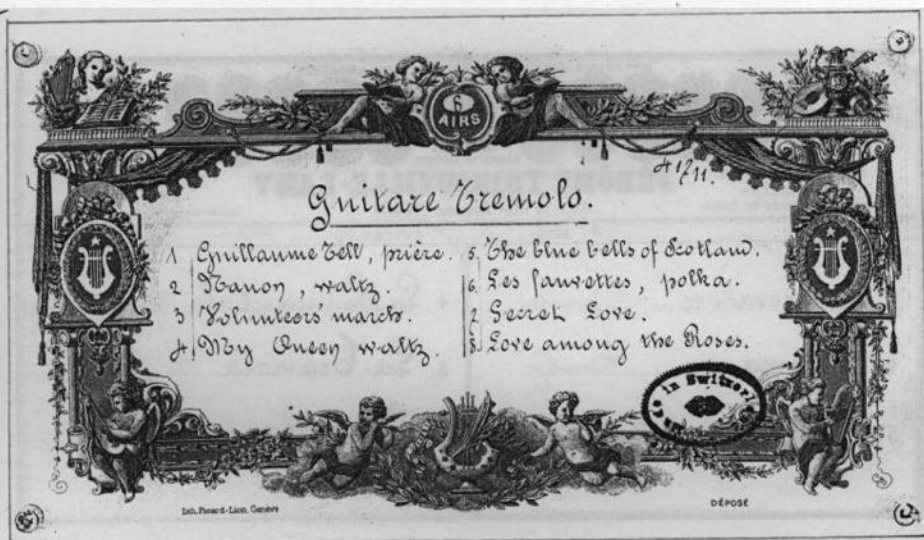 8
AIRS
4 1711.
Guitare Tremolo.
1 Guillaume Tell, prière.
2 Nanon, waltz.
3 Volunteers march.
4 My Queen waltz.
5. The blue bells of Scotland.
6. Les fauvettes, polka.
7 Secret Love.
8. Love among the Roses.
Made in Switzerland
Lith. Picard-Lion, Genève
DÉPOSÉ